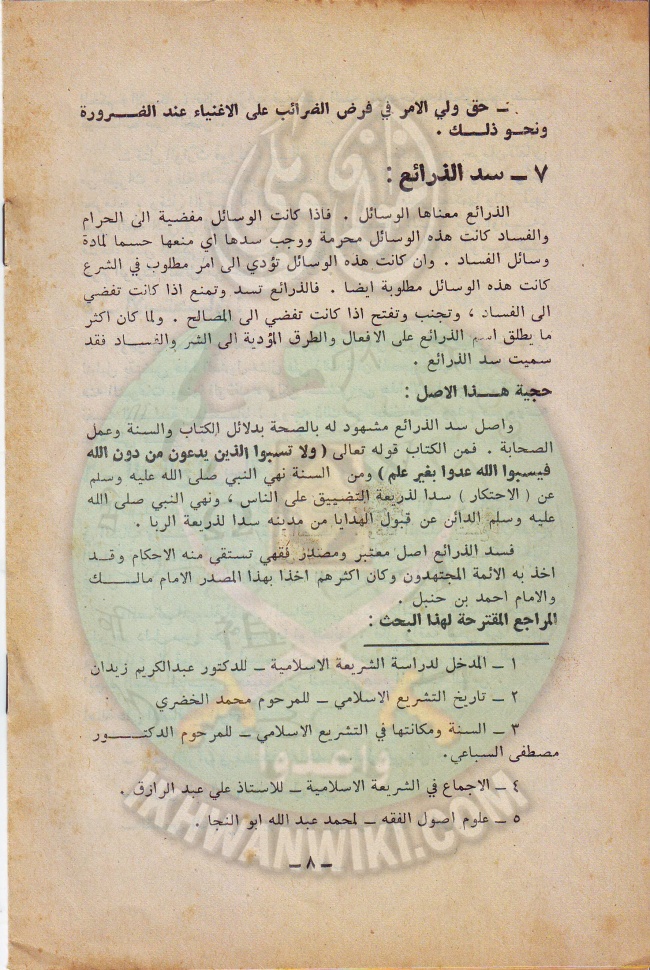 ـ حق ولي الامر في فرض الضرائب على الاغنياء عند الضـرورة
ونحـو ذلـــك .
٧ ـ سد الذرائع :
الذرائع معناها الوسائل . فاذا كانت الوسائل مفضية الى الحرام
والفساد كانت هذه الوسائل محرمة ووجب سدها اي منعها حسما لمادة
وسائل الفساد . وان كانت هذه الوسائل تؤدي الى امر مطلوب في الشرع
كانت هذه الوسائل مطلوبة ايضا . فالذرائع تسد وتمنع اذا كانت تفضي
الى الفساد ، وتجنب وتفتح اذا كانت تفضي الى المصالح . ولما كان اكثر
ما يطلق اسم الذرائع على الافعال والطرق المؤدية الى الشر والفساد فقد
سميت سد الذرائع .
حجية هـــذا الاصل :
واصل سد الذرائع مشهود له بالصحة بدلائل الكتاب والسنة وعمل
الصحابة . فمن الكتاب قوله تعالى ( ولا تسبوا الذين يدعون من دون الله
فيسبوا الله عدوا بغير علم ) ومن السنة نهي النبي صلى الله عليه وسلم
عن ( الاحتكار ) سدا لذريعة التضييق على الناس ، ونهي النبي صلى الله
عليه وسلم الدائن عن قبول الهدايا من مدينه سدا لذريعة الربا .
فسد الذرائع اصل معتبر ومصدر فقهي تستقى منه الاحكام وقـد
اخذ به الائمة المجتهدون وكان اكثرهم اخذا بهذا المصدر الامام مالـــك
والامام احمد بن حنبل .
المراجع المقترحة لهذا البحث :
١ ـ المدخل لدراسة الشريعة الاسلامية ـ للدكتور عبدالكريم زيدان
٢ ـ تاريخ التشريع الاسلامي ـ للمرحوم محمد الخضري
٣ ـ السنة ومكانتها في التشريع الاسلامي ـ للمرحوم الدكتـــور
مصطفى السباعي.
٤ ـ الاجماع في الشريعة الاسلامية ـ للاستاذ علي عبد الرازق .
٥ ـ علوم اصول الفقه ـ لمحمد عبد الله ابو النجا .
وأعدوا
IKHWANWIKI.COM
ـ ٨ ـ